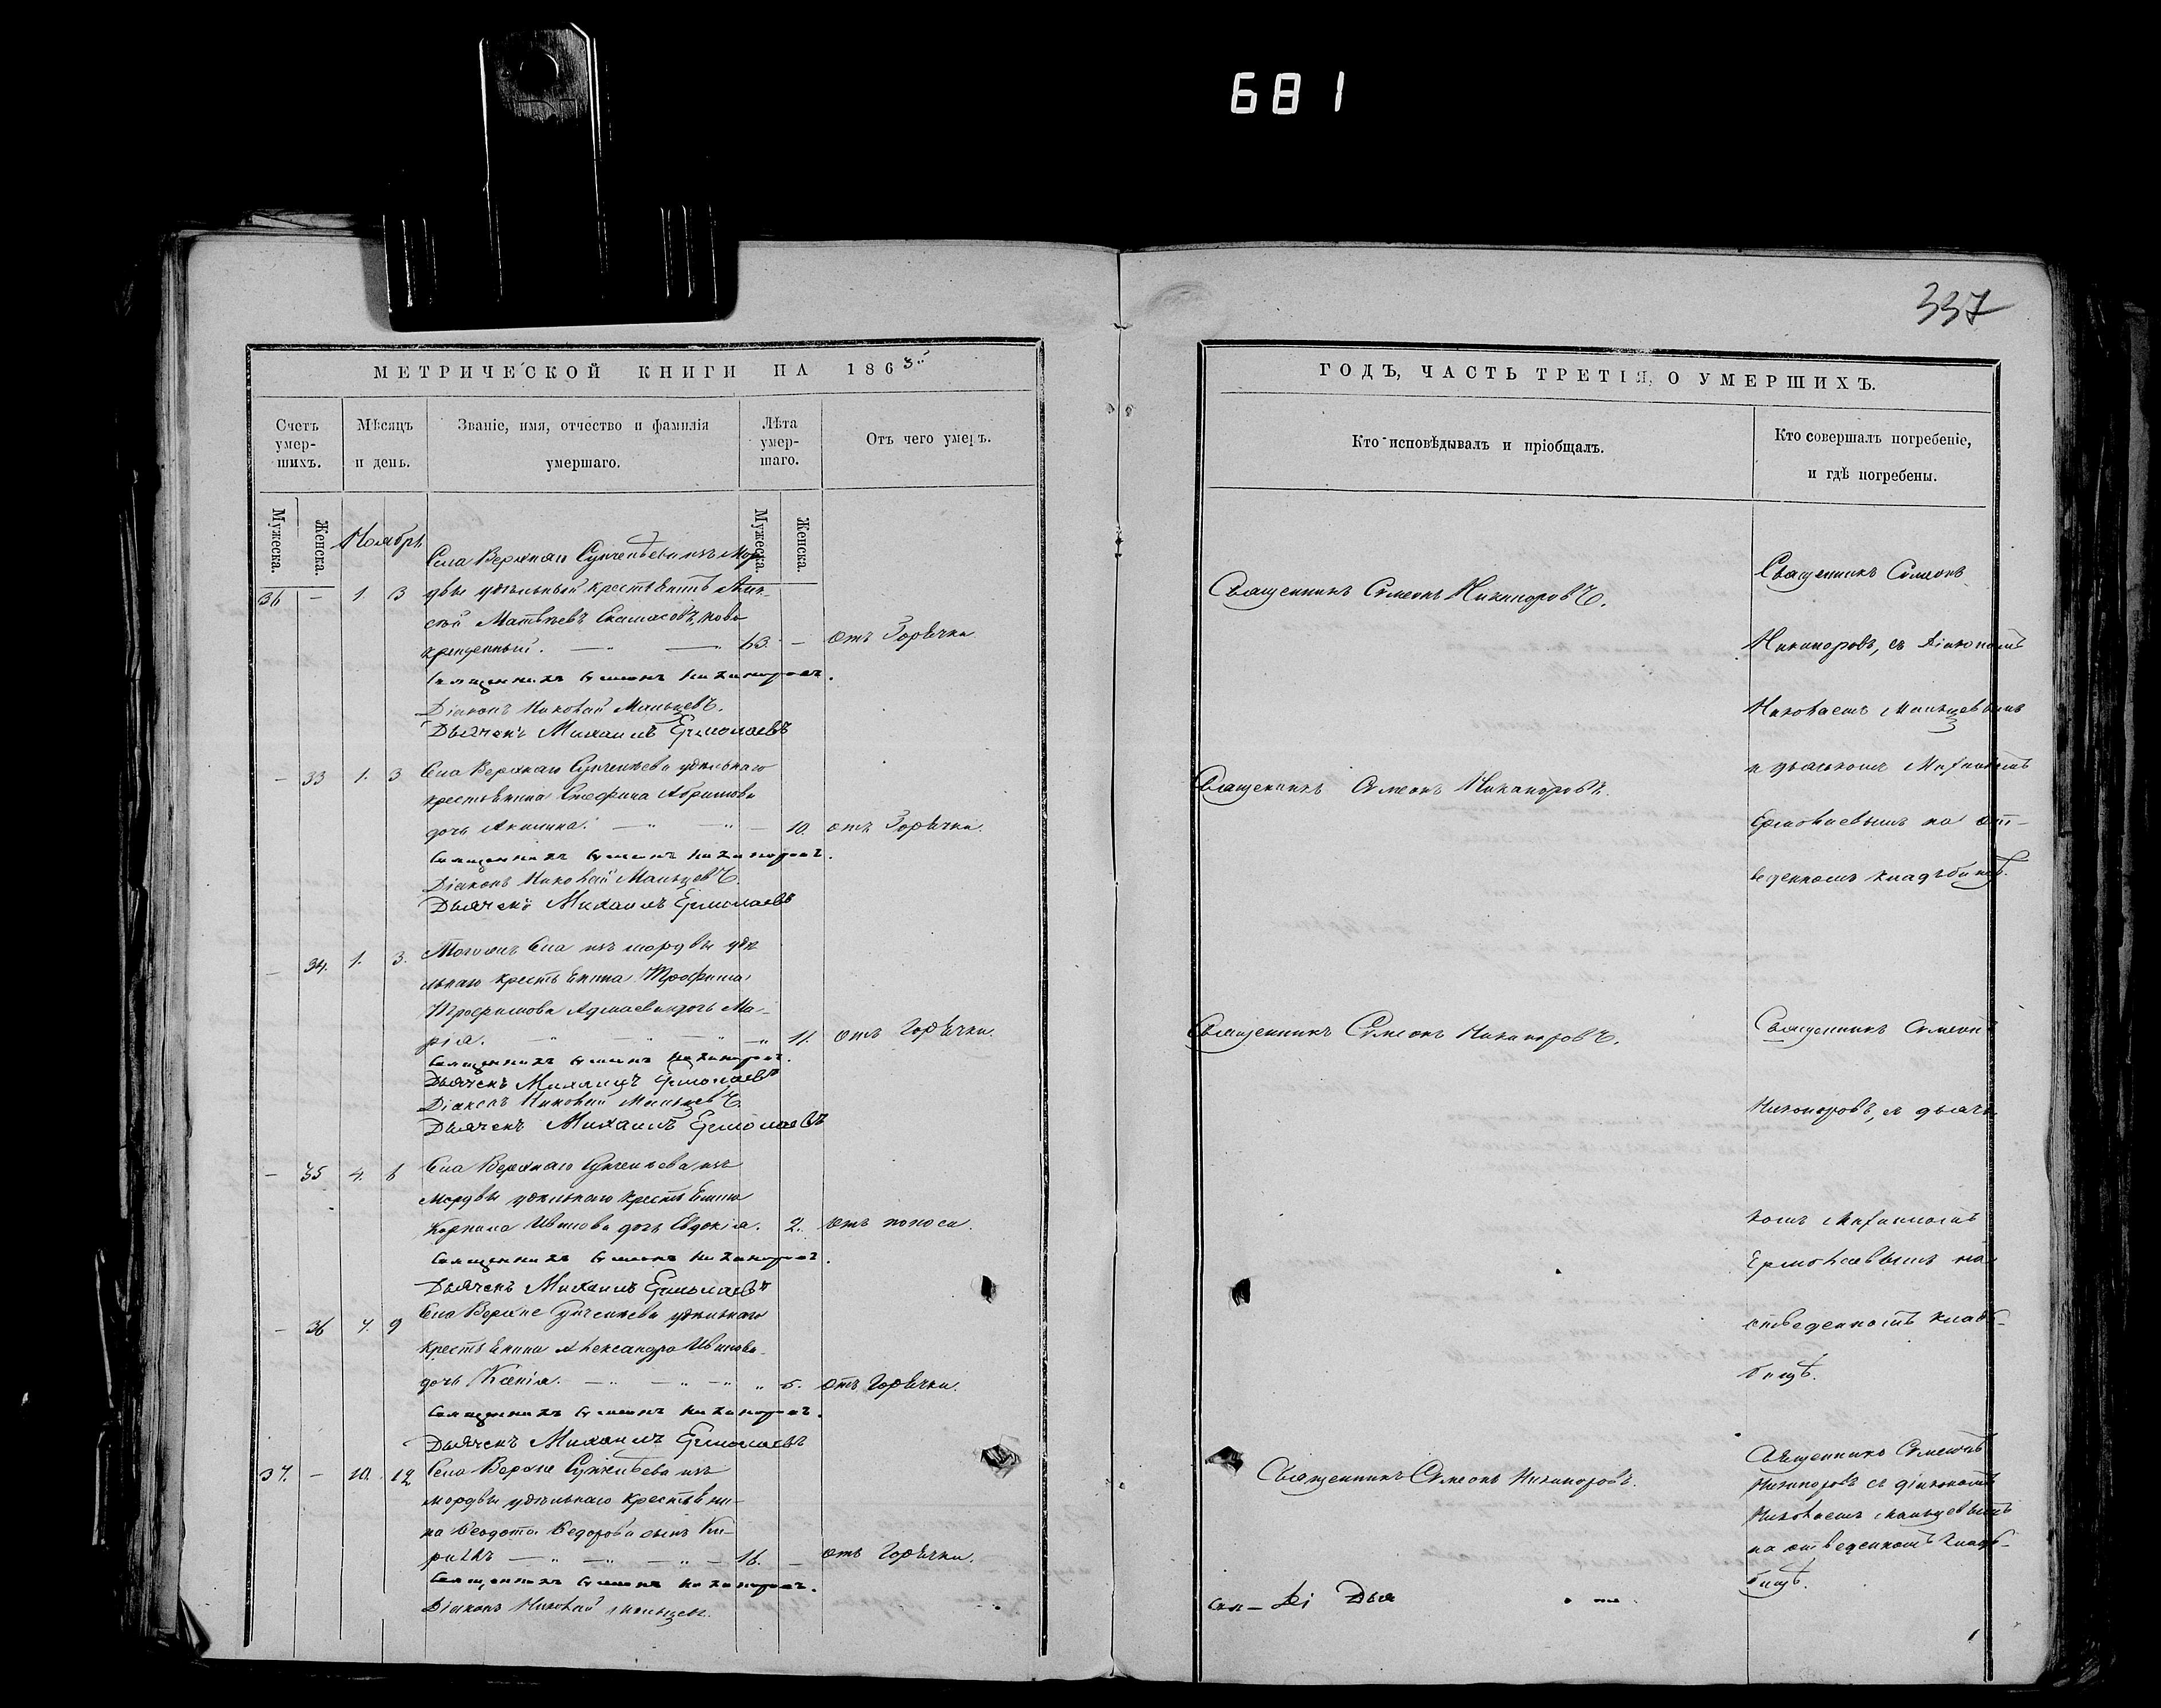 681
337
МЕТРИЧЕСКОЙ КНИГИ НА 1863
Счетъ умер-шихъ.
Мѣсяцъ и день.
Званіе, имя, отчество и фамилія умершаго.
Лѣта умер-шаго.
Отъ чего умеръ.
Мужеска.
Женска.
Ноябрь
Мужеска.
Женска.
Села Верхняго изъ Мор-
36 — 1. 3 двы удѣльный крестьянинъ Алек-
сѣй Матвѣевъ ново
крещенный. — 63. — отъ Горячки
Священникъ Симеонъ Никаноровъ.
Діаконъ Николай Мальцевъ.
Дьячекъ Михаилъ Ермолаевъ
— 33 1. 3 Села Верхняго удѣльнаго
крестьянина Стефана Абрамова
дочь Акилина. — 10. отъ Горячки.
Священникъ Симеонъ Никаноровъ.
Діаконъ Николай Мальцевъ.
Дьячекъ Михаилъ Ермолаевъ
— 34. 1. 3. Тогожъ Села изъ мордвы удѣ
льнаго крестьянина Трофима
Трофимова дочь Ма-
рія. — 11. отъ Горячки.
Священникъ Симеонъ Никаноровъ.
Дьячекъ Михаилъ Ермолаевъ
Діаконъ Николай Мальцевъ.
Дьячекъ Михаилъ Ермолаевъ
— 35 4. 6 Села Верхняго изъ
Мордвы удѣльнаго крестьянина
Корнила Иванова дочь Евдокія. 2. отъ поноса.
Священникъ Симеонъ Никаноровъ.
Дьячекъ Михаилъ Ермолаевъ
— 36 7. 9 Села Верхне удѣльнаго
крестьянина Александра Иванова
дочь Ксенія. — 5. отъ Горячки.
Священникъ Симеонъ Никаноровъ.
Дьячекъ Михаилъ Ермолаевъ
37. — 10. 12 Села Верхне изъ
мордвы удѣльнаго крестьяни-
на Ѳеодота Ѳедорова сынъ Ки-
— 16. — отъ Горячки.
Священникъ Симеонъ Никаноровъ.
Діаконъ Николай Мальцевъ.
ГОДЪ, ЧАСТЬ ТРЕТІЯ, О УМЕРШИХЪ.
Кто исповѣдывалъ и пріобщалъ.
Кто совершалъ погребеніе,
и гдѣ погребены.
Священникъ Симеонъ Никаноровъ.
Священникъ Симеонъ
Никаноровъ, съ Діакономъ
Николаемъ Мальцевымъ
и дьячкомъ Михаиломъ
Священникъ Симеонъ Никаноровъ.
Ермолаевымъ на от-
веденномъ кладъбищѣ.
Священникъ Симеонъ Никаноровъ.
Священникъ Симеонъ
Никаноровъ, съ дьяч-
комъ Михаиломъ
Ермолаевымъ на
отведенномъ кладъ-
бищѣ.
Священникъ Симеонъ Никаноровъ.
Священникъ Симеонъ
Никаноровъ съ діакономъ
Николаемъ Мальцевымъ
на отведенномъ кладъ-
бищѣ.
Ді Дья